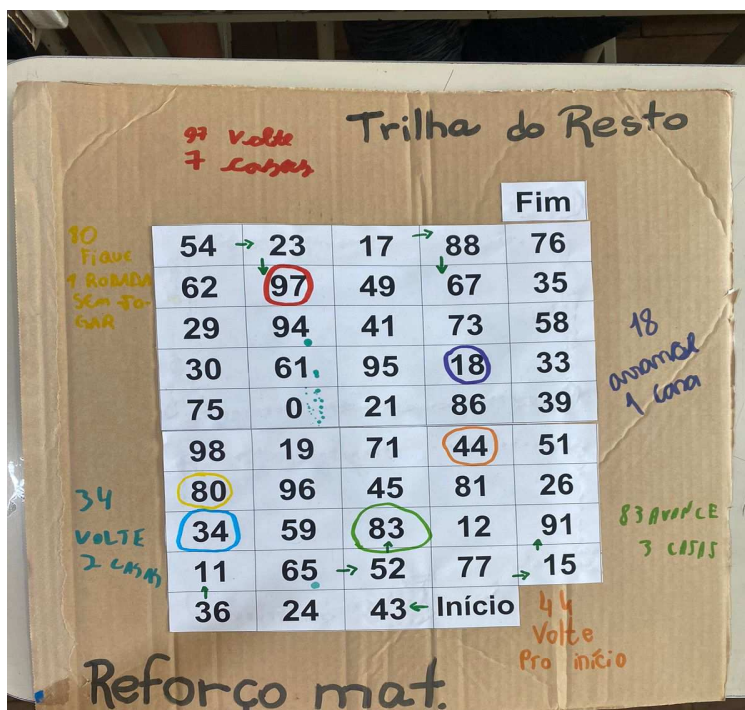 Trilha do Resto
97 Volte
7 casas
Fim
80
Fique
1 RODADA
SEM JO-
GAR
54 → 23 17 → 88 76
62 97 49 67 35
29 94 41 73 58
30 61 95 18 33
75 0 21 86 39
98 19 71 44 51
80 96 45 81 26
34 59 83 12 91
11 65 → 52 77 → 15
36 24 43 ← Início
18
avance
1 casa
34
VOLTE
2 CASAS
83 AVANCE
3 CASAS
44
Volte
Pro início
Reforço mat.